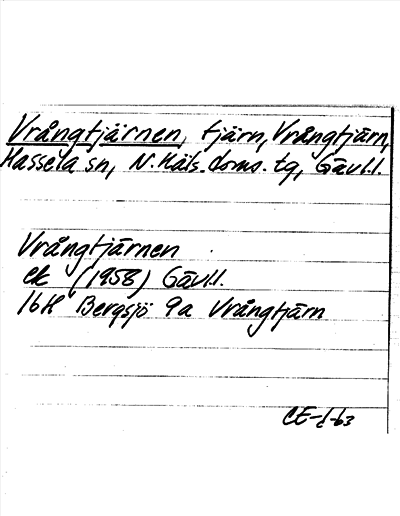 Vrångtjärnen, tjärn, Vrångtjärn,
Hassela sn, N. Häls. doms. tg, Gävl.l.
Vrångtjärnen
ek (1958) Gävl.l.
16H Bergsjö 9a Vrångtjärn